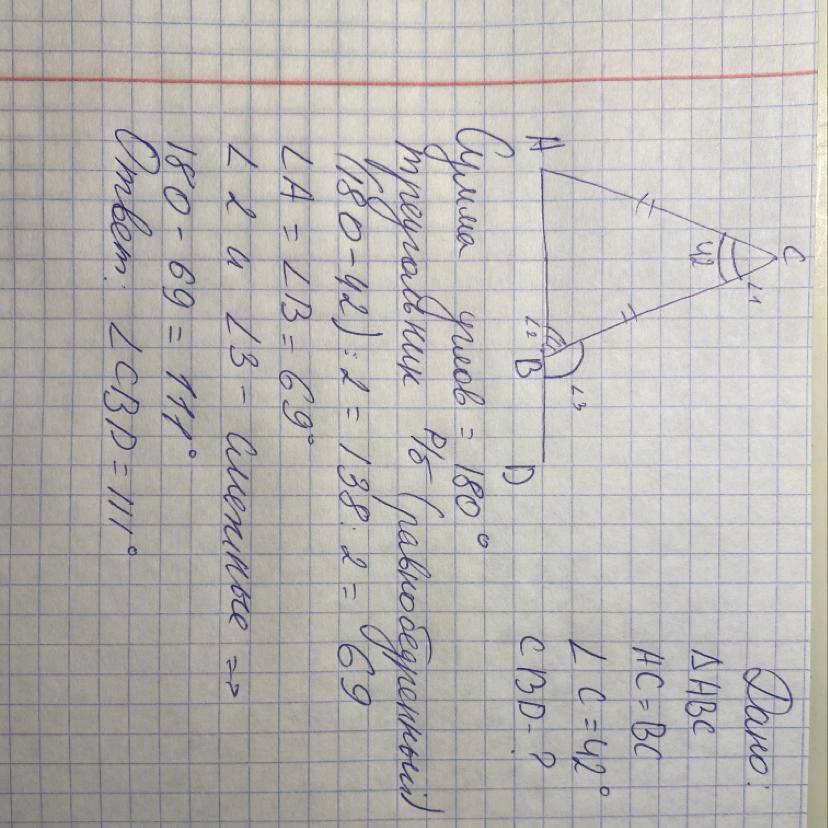 Дано:
ΔABC
AC = BC
∠C = 42°
CBD - ?
C
∠1
42
A
∠2
B
∠3
D
Сумма углов = 180°
треугольник р/б (равнобедренный)
(180 - 42) : 2 = 138 : 2 = 69
∠A = ∠B = 69°
∠2 и ∠3 - смежные =>
180 - 69 = 111°
Ответ: ∠CBD = 111°